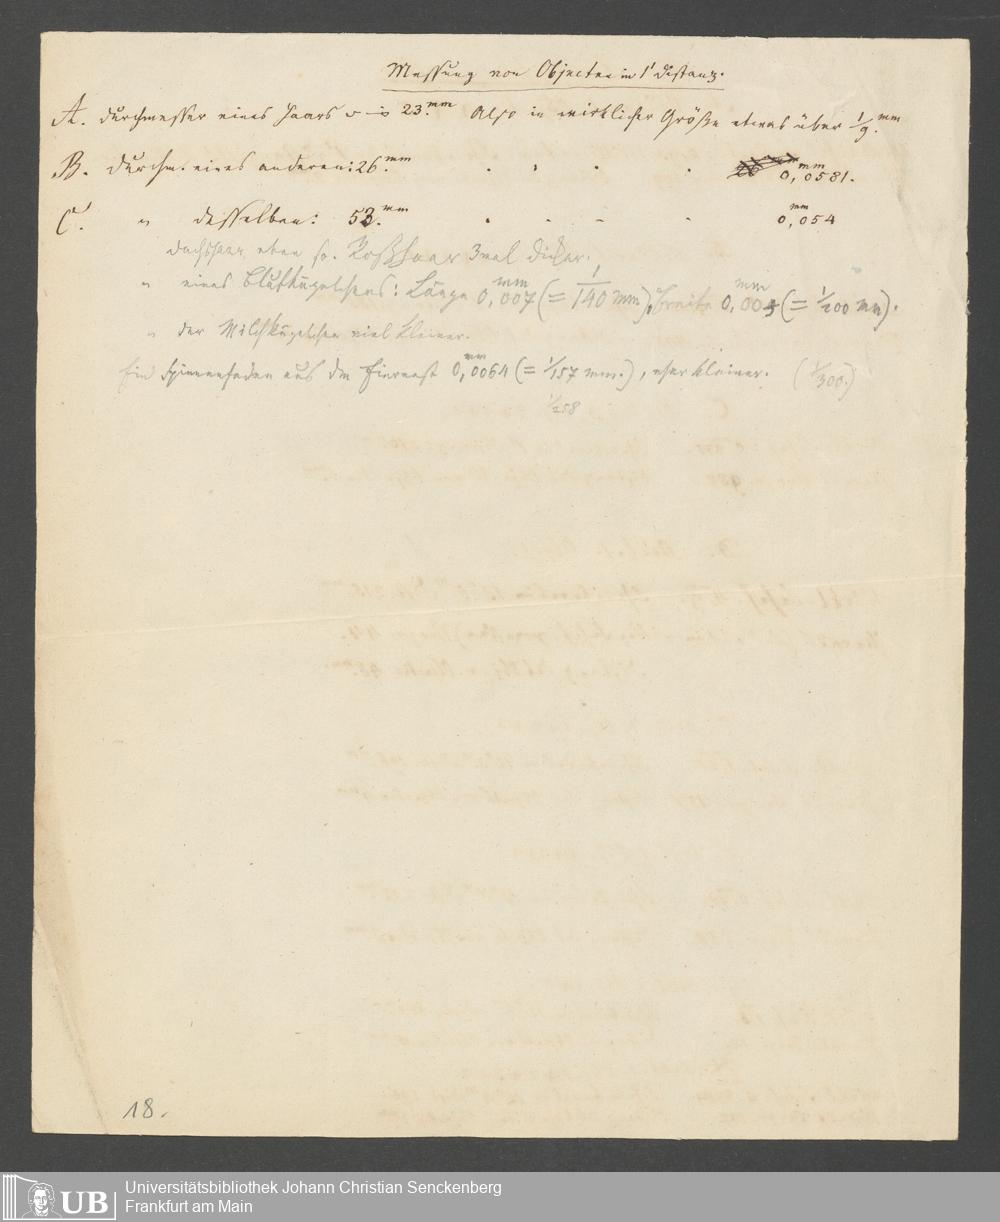 Messung von Objecten in 1' Distanz.
A. Durchmesser eines Haars 23.mm Also in wirklicher Größe etwas über 1/9.mm
B. Durchm. eines anderen: 26.mm " " " " 0,0581.mm
C. " desselben: 53.mm " " " " 0,054mm
Dachshaar eben so. Roßhaar 3mal dicker.
" eines Blutkügelchens: Länge 0,007mm (= 1/140 mm), Breite 0,005mm (= 1/200 mm).
" der Milchkügelchen viel kleiner.
Ein Spinnenfaden aus dem Eiernest 0,0064mm (= 1/157 mm.), eher kleiner. (1/300.)
1/258
18.
UB Universitätsbibliothek Johann Christian Senckenberg
Frankfurt am Main